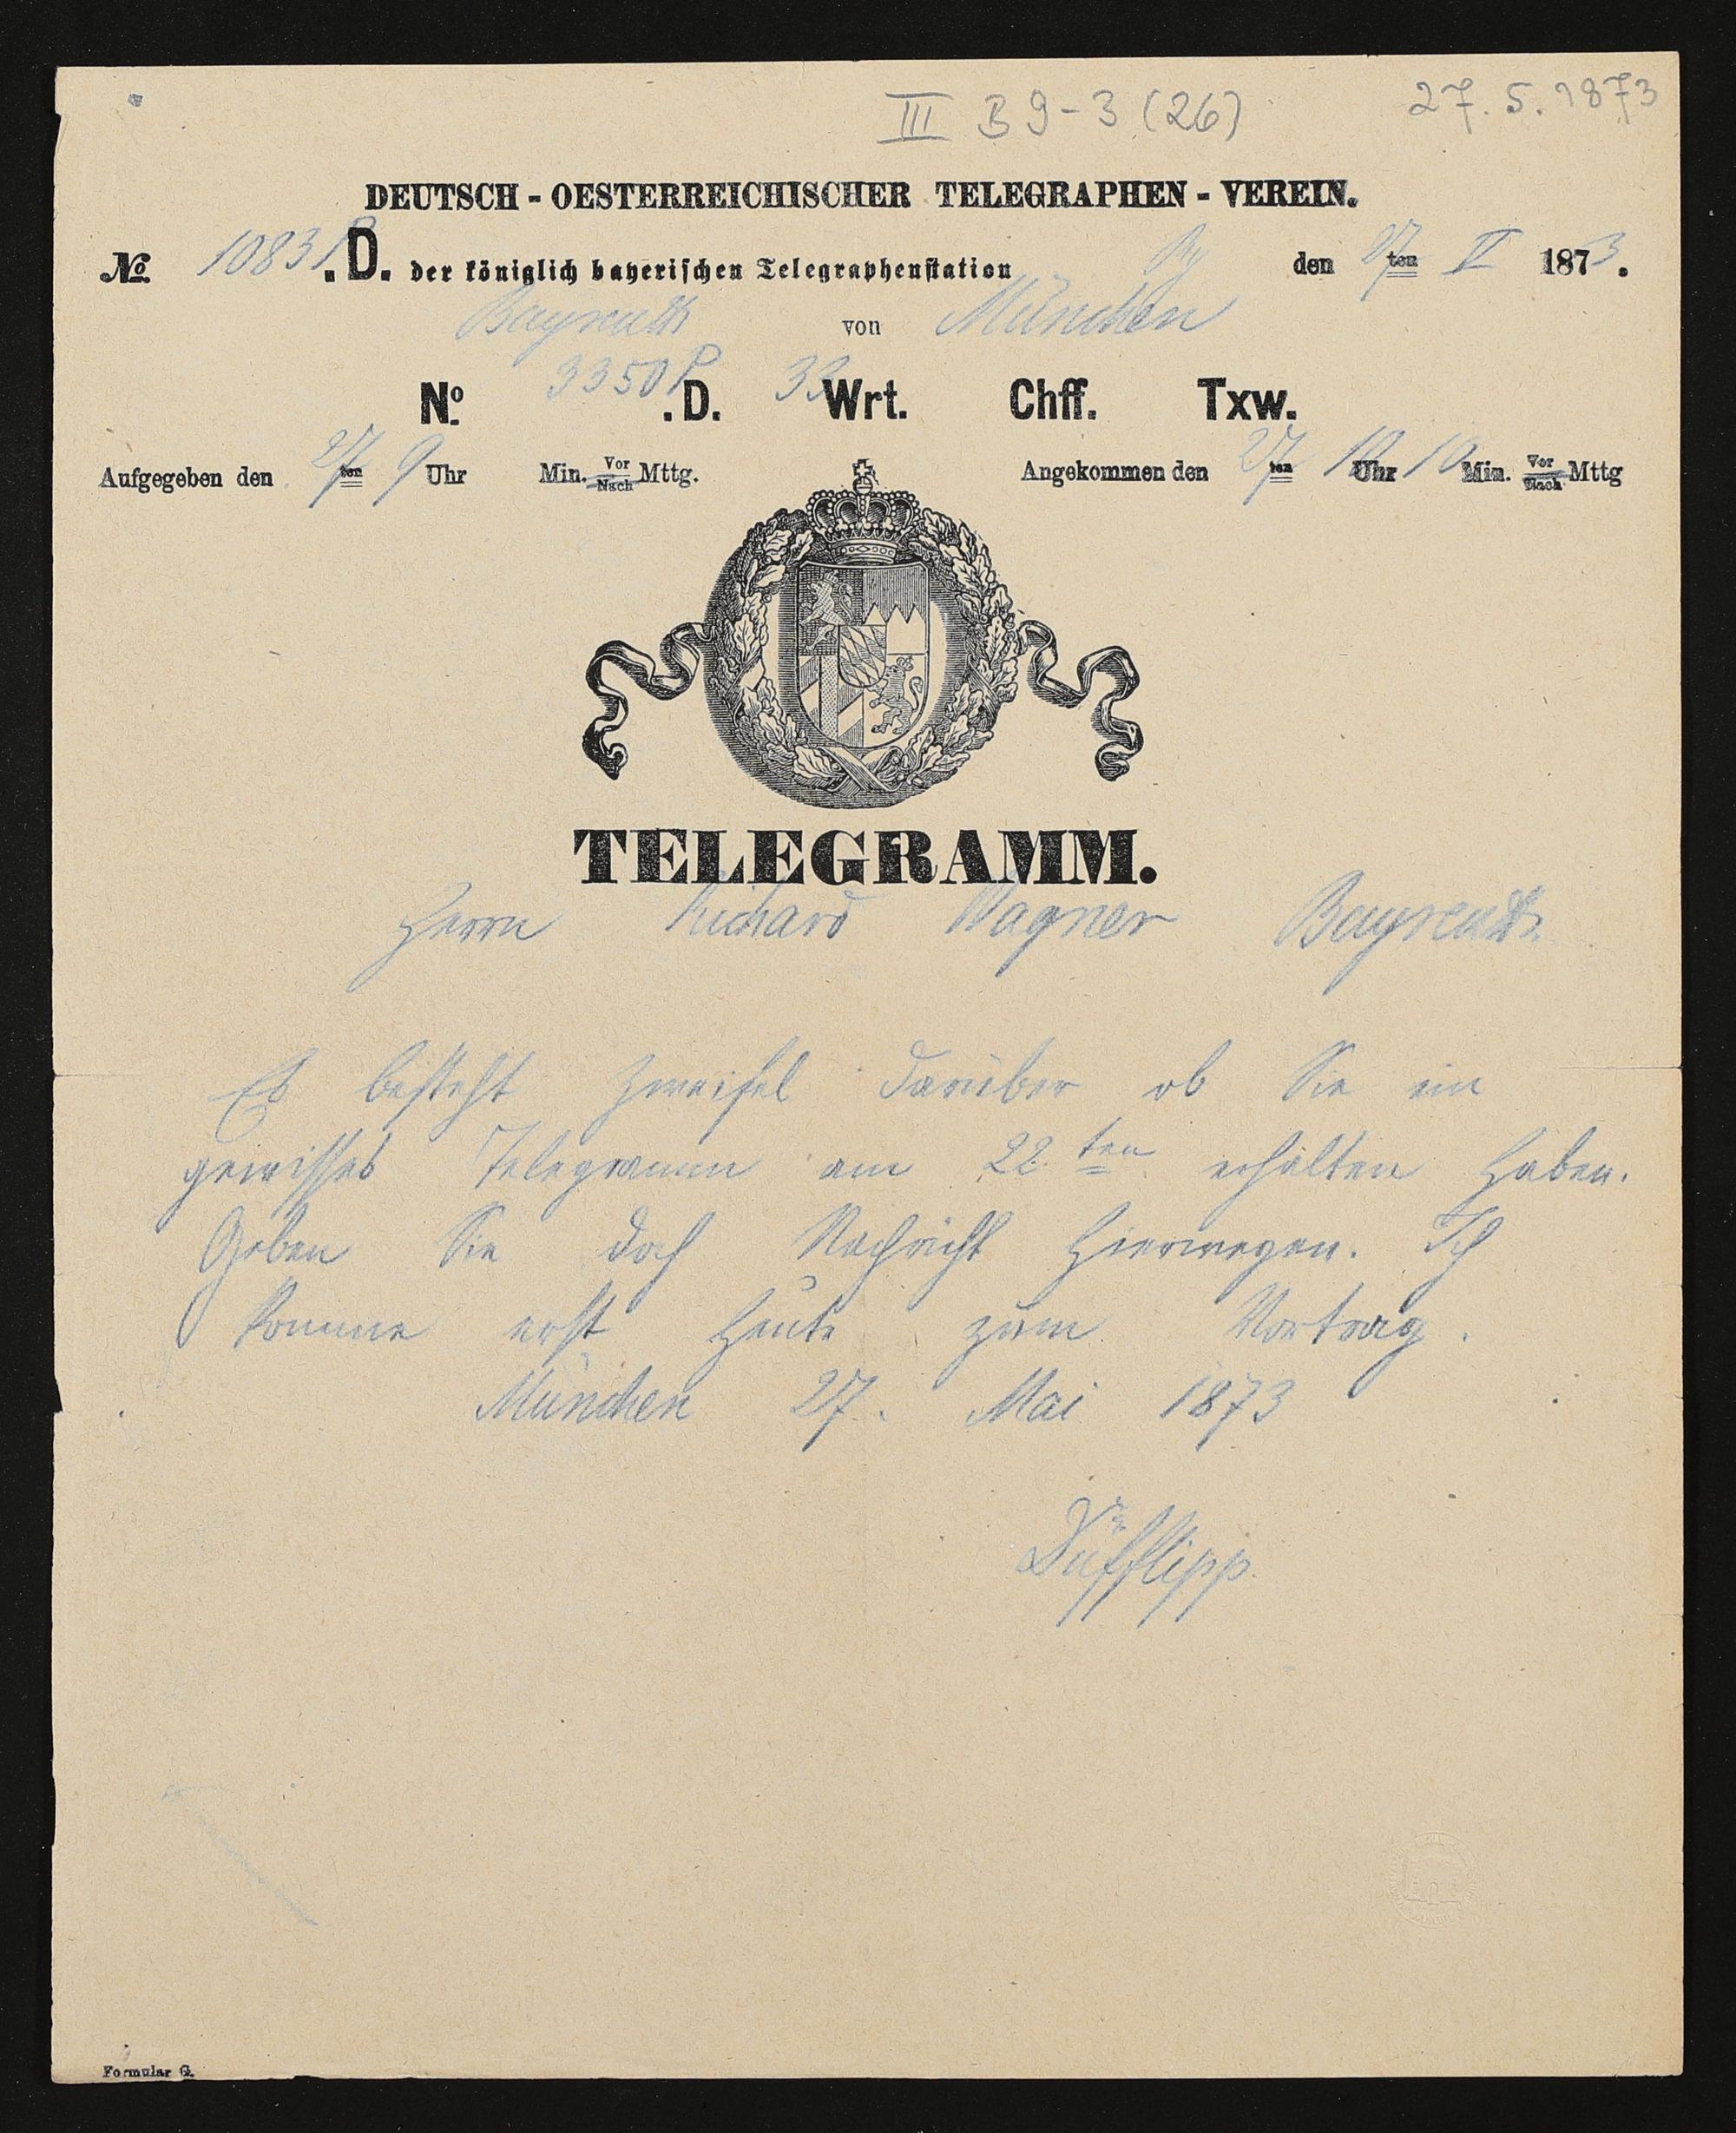 III B 9-3 (26)
27. 5. 1873
DEUTSCH - OESTERREICHISCHER TELEGRAPHEN - VEREIN.
No. 1083 .D. der königlich bayerischen Telegraphenstation den 27ten V 1873.
Bayreuth von München
No. 3350 P .D. 33 Wrt. Chff. Txw.
Aufgegeben den 27ten 9 Uhr Min. Vor Nach Mttg. Angekommen den 27ten 10 Uhr 10 Min. Vor Nach Mttg
TELEGRAMM.
Herrn Richard Wagner Bayreuth
Es besteht Zweifel darüber ob Sie ein
gewisses Telegramm am 22ten erhalten haben.
Geben Sie doch Nachricht hierwegen. Ich
komme erst heute zum Vortrag.
München 27. Mai 1873
Düfflipp.
Formular G.